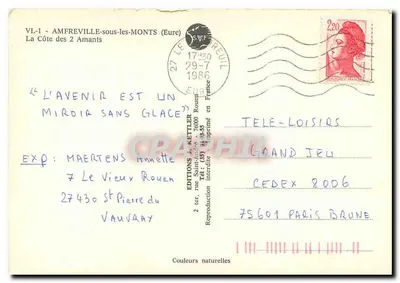 VL-1 - AMFREVILLE-sous-les-MONTS (Eure)
La Côte des 2 Amants
27 LE
REUIL
17 30
29-7
1986
Eure
2,20
"L'AVENIR EST UN
MIROIR SANS GLACE"
EXP: MAERTENS Annette
7 Le Vieux Rouen
27430 St Pierre du
VAUVRAY
EDITIONS KETTLER
2 ter, rue 76000 Rouen
Reproduction interdite - Imprimé en France
TELE-LOISIRS
GRAND JEU
CEDEX 2006
75601 PARIS BRUNE
Couleurs naturelles